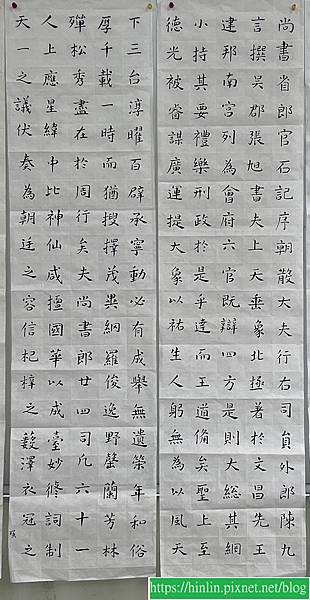 尚書省郎官石記序朝散大夫行右司員外郎陳九
言撰吳郡張旭書夫上天垂象北極著於文昌先王
建邦南宮列為會府六官既辯四方是則大總其綱
小持其要禮樂刑政於是乎達而王道俻矣聖上至
德光被睿謀廣運提大象以祐生人躬無為以風天
下三台淳曜百辟承寧動必有成舉無遺策年和俗
厚千載一時而猶搜擇茂異網羅俊逸野罄蘭芳林
殫松秀盡在於同行矣夫尚書郎廿四司凡六十一
人上應星緯中比神仙咸擅國華以成臺妙修詞制
天一之議伏奏為朝廷之容信杞梓之藪澤衣冠之
https://hinlin.pixnet.net/blog